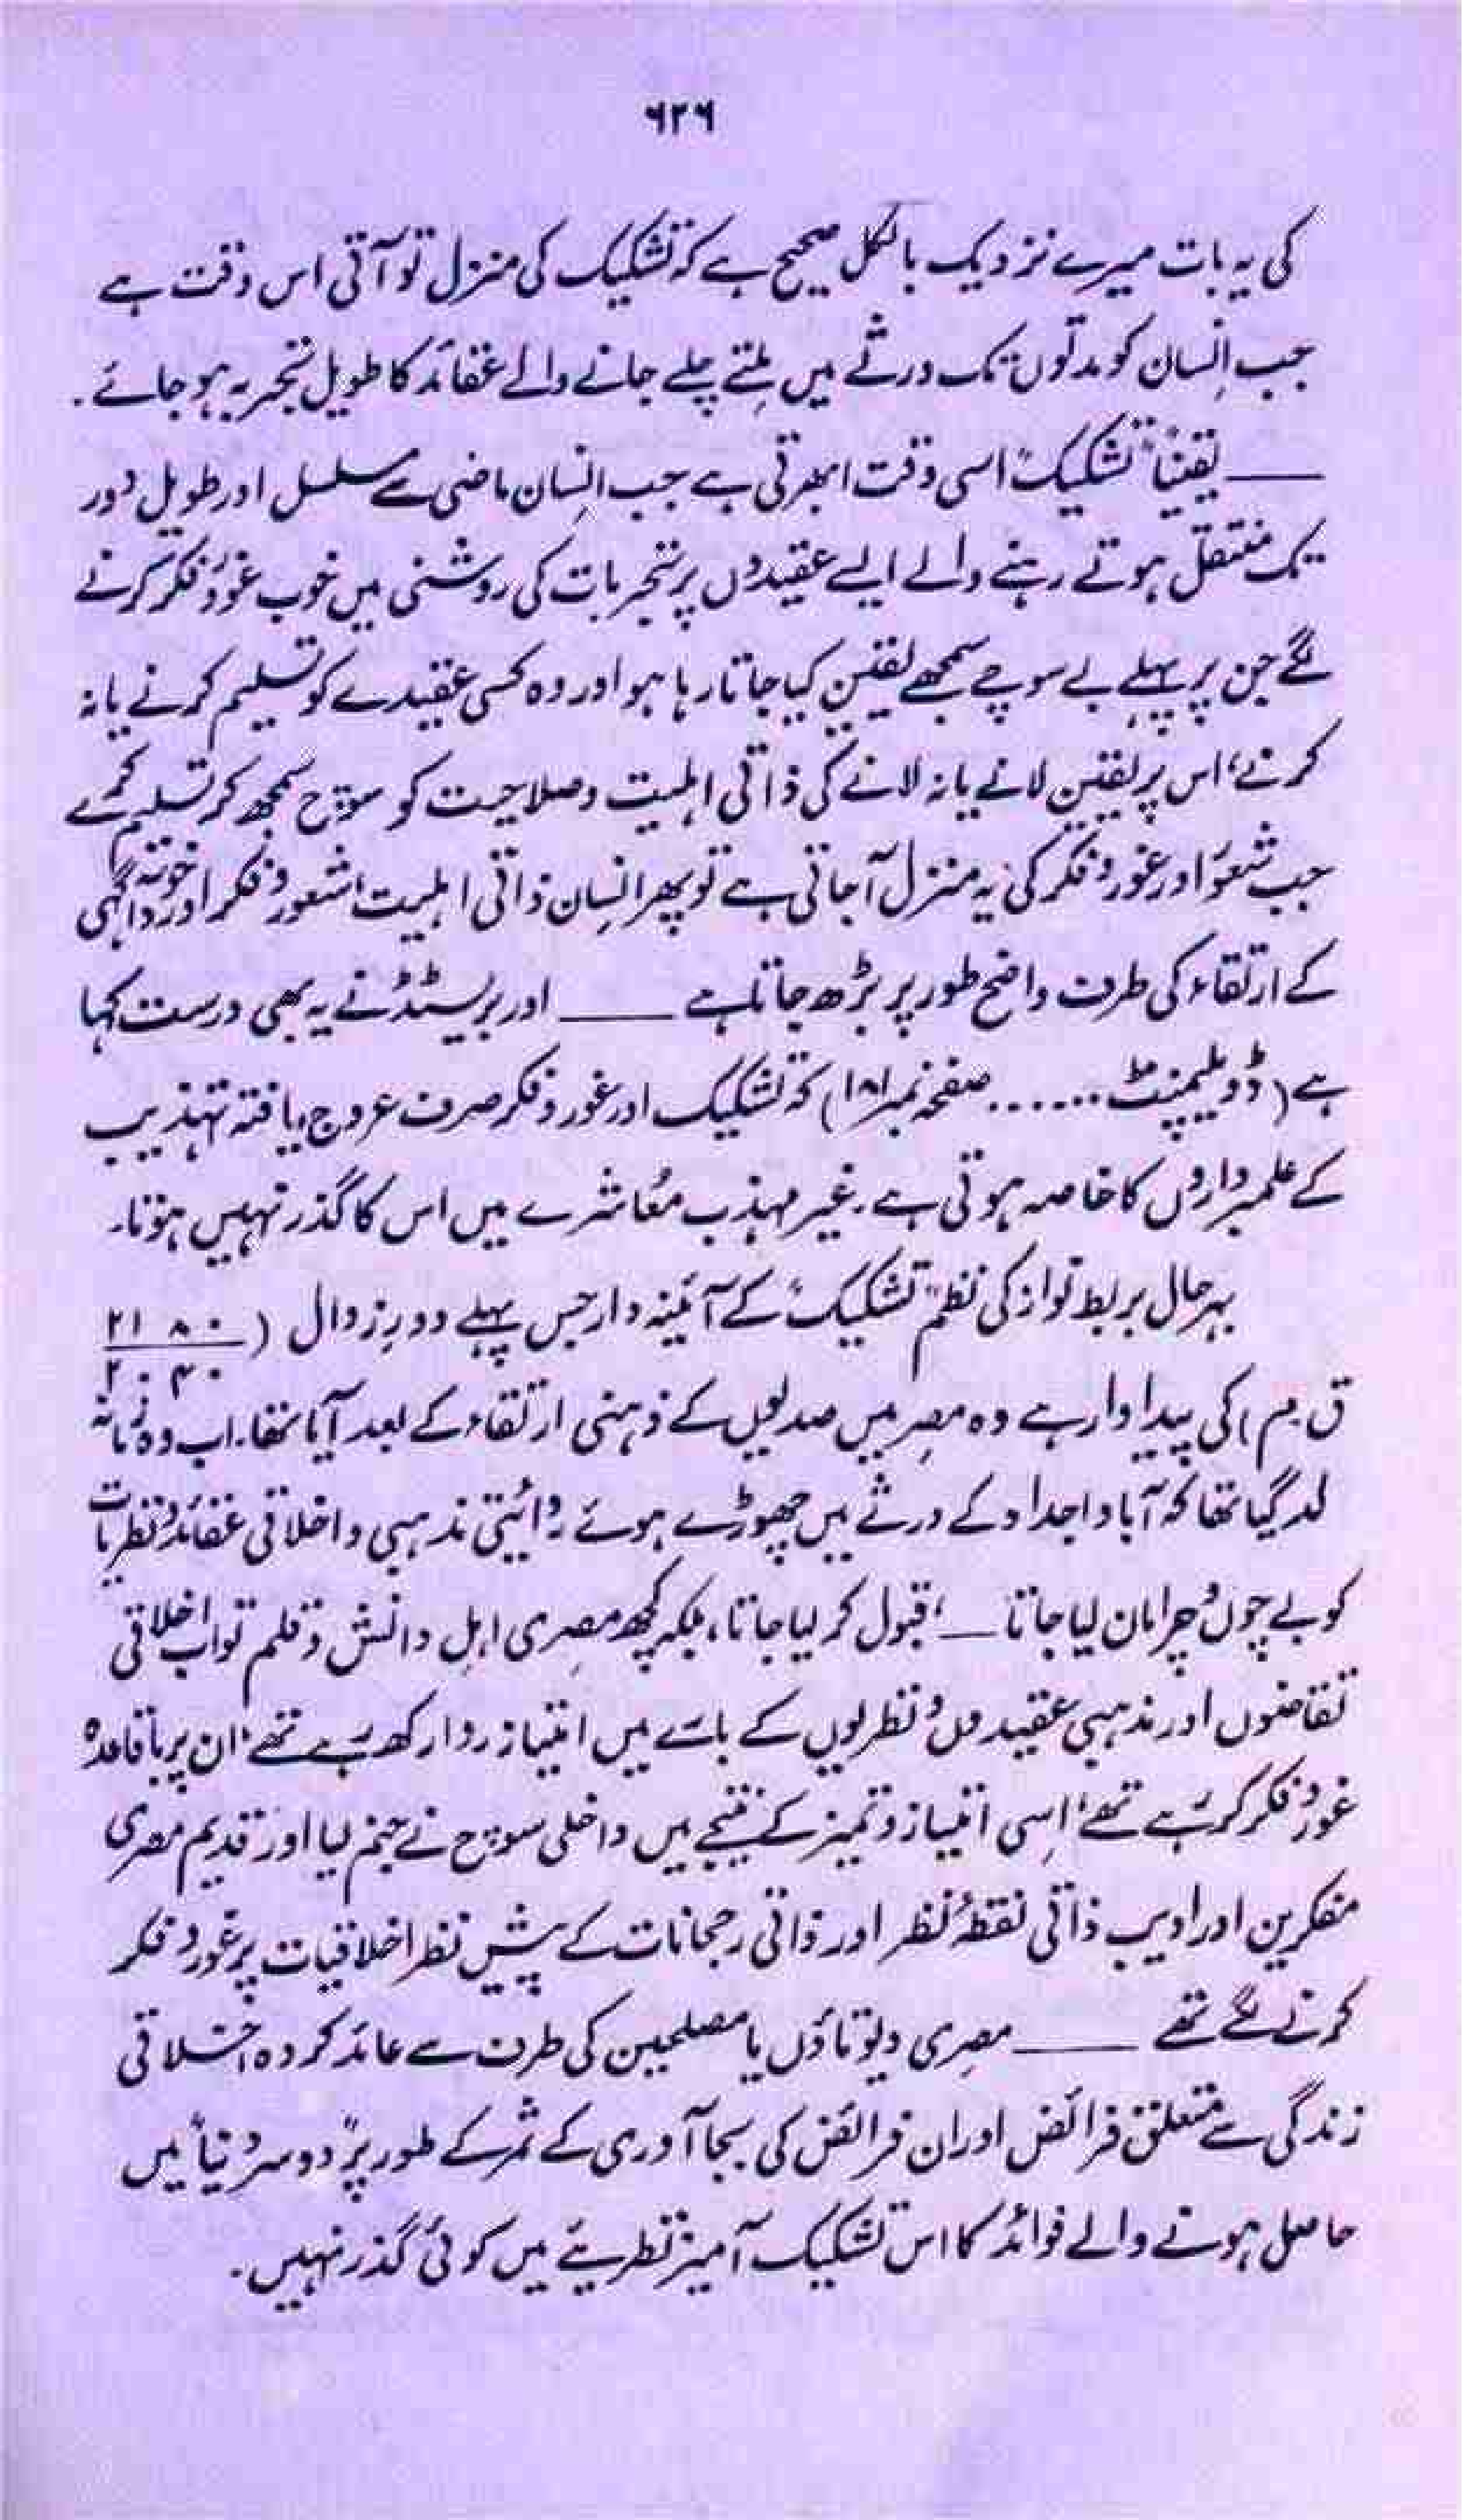 ۶۲۶
کی یہ بات میرے نزدیک بالکل صحیح ہے کہ تشکیک کی منزل تو آتی اس وقت ہے
جب اِنسان کو مدتوں تک ورثے میں مِلتے چلے جانے والے عقائد کا طویل تجربہ ہو جائے۔
ــــــ یقیناً "تشکیک" اسی وقت ابھرتی ہے جب انسان ماضی سے مسلسل اور طویل دور
تک منتقل ہوتے رہنے والے ایسے عقیدوں پر تجربات کی روشنی میں خوب غور و فکر کرنے
لگے جن پر پہلے بے سوچے سمجھے یقین کیا جاتا رہا ہو اور وہ کسی عقیدے کو تسلیم کرنے یا نہ
کرنے، اس پر یقین لانے یا نہ لانے کی ذاتی اہلیت و صلاحیت کو سوچ سمجھ کر تسلیم کرے
جب شعور اور غور و فکر کی یہ منزل آ جاتی ہے تو پھر انسان ذاتی اہلیت، شعور و فکر اور خود آگہی
کے ارتقاء کی طرف واضح طور پر بڑھ جاتا ہے ــــــ اور بریسٹڈ نے یہ بھی درست کہا
ہے (ڈویلپمنٹ ...... صفحہ نمبر ۱۸۱) کہ تشکیک اور غور و فکر صرف عروج یافتہ تہذیب
کے علمبرداروں کا خاصہ ہوتی ہے۔ غیر مہذب معُاشرے میں اس کا گذر نہیں ہوتا۔
بہرحال بربط نواز کی نظم "تشکیک" کے آئینہ دار جس پہلے دورِ زوال (۲۱۸۰/۲۰۴۰
ق م) کی پیداوار ہے وہ مصر میں صدیوں کے ذہنی ارتقاء کے بعد آیا تھا۔ اب وہ زمانہ
لد گیا تھا کہ آبا و اجداد کے ورثے میں چھوڑے ہوئے روائیتی مذہبی و اخلاقی عقائد و نظریات
کو بے چوں و چرا مان لیا جاتا ــ، قبول کر لیا جاتا، بلکہ کچھ مصری اہلِ دانش و قلم تو اب اخلاقی
تقاضوں اور مذہبی عقیدوں و نظریوں کے بارے میں امتیاز روا رکھ رہے تھے، ان پر باقاعدہ
غور و فکر کر رہے تھے، اِسی امتیاز و تمیز کے نتیجے میں داخلی سوچ نے جنم لیا اور قدیم مصری
مفکرین اور ادیب ذاتی نقطۂ نظر اور ذاتی رجحانات کے پیش نظر اخلاقیات پر غور و فکر
کرنے لگے تھے ــــــ مصری دیوتاؤں یا مصلحین کی طرف سے عائد کردہ اخلاقی
زندگی سے متعلق فرائض اور ان فرائض کی بجا آوری کے ثمر کے طور پر "دوسری دنیا" میں
حاصل ہونے والے فوائد کا اس تشکیک آمیز نظریئے میں کوئی گذر نہیں۔